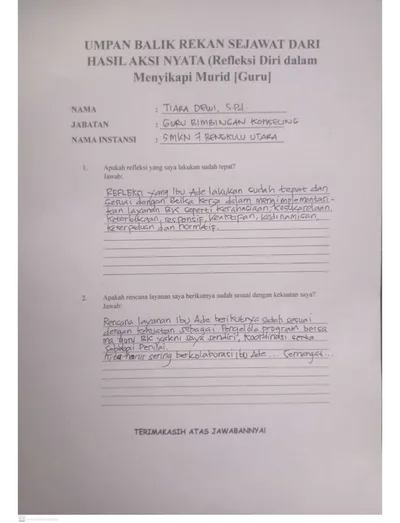 UMPAN BALIK REKAN SEJAWAT DARI
HASIL AKSI NYATA (Refleksi Diri dalam
Menyikapi Murid [Guru]
NAMA : TIARA DEWI, S.Pd
JABATAN : GURU BIMBINGAN KONSELING
NAMA INSTANSI : SMKN 7 BENGKULU UTARA
1. Apakah refleksi yang saya lakukan sudah tepat?
Jawab:
REFLEKSI yang Ibu Ade lakukan sudah tepat dan
Sesuai dengan Beika Kerja dalam mengimplementasi-
kan layanan BK seperti kerahasiaan, kesukarelaan,
keterbukaan, responsip, keaktifan, kedinamisan,
keterpaduan dan normatif.
2. Apakah rencana layanan saya berikutnya sudah sesuai dengan kekuatan saya?
Jawab:
Rencana layanan Ibu Ade berikutnya sudah sesuai
dengan kekuatan sebagai Pengelola program bersa
ma guru BK yakni saya sendiri, koordinasi serta
sebagai Penilai.
Kita harus sering berkolaborasi Ibu Ade... Semangat...
TERIMAKASIH ATAS JAWABANNYA!